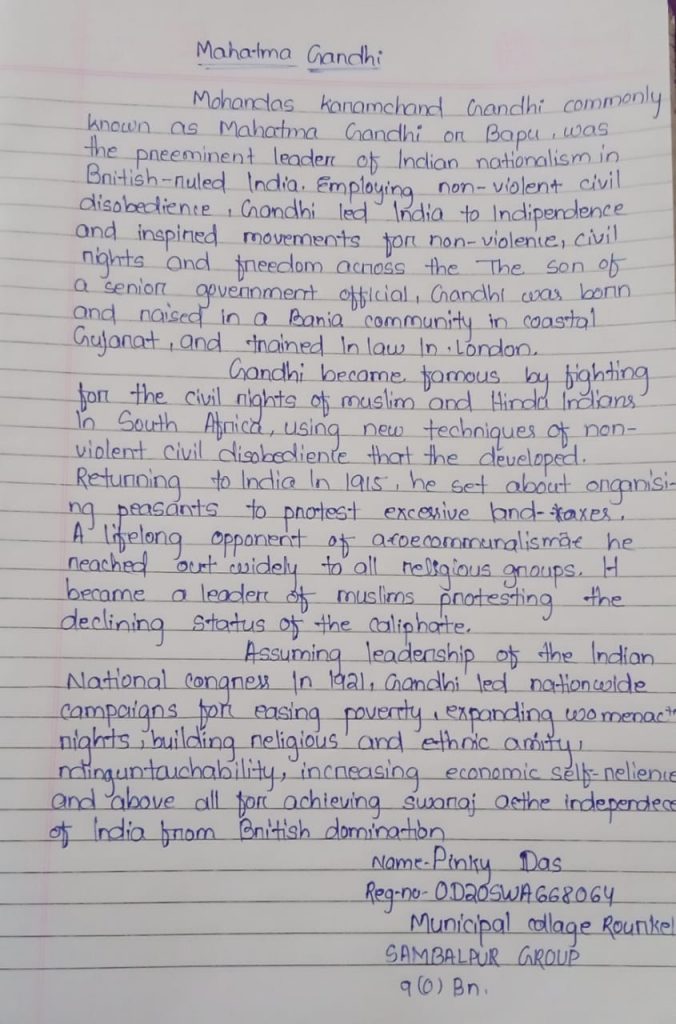 Mahatma Gandhi
Mohandas karamchand Gandhi commonly
known as Mahatma Gandhi or Bapu, was
the preeminent leader of Indian nationalism in
British-ruled India. Employing non-violent civil
disobedience, Gandhi led India to Indipendence
and inspired movements for non-violence, civil
rights and freedom across the The son of
a senior government official, Gandhi was born
and raised in a Bania community in coastal
Gujarat, and trained In law In London.
Gandhi became famous by fighting
for the civil rights of muslim and Hindu Indians
In South Africa, using new techniques of non-
violent civil disobedience that the developed.
Returning to India In 1915, he set about organisi-
ng peasants to protest excessive land-taxes.
A lifelong opponent of he
reached out widely to all religious groups. H
became a leader of muslims protesting the
declining status of the caliphate.
Assuming leadership of the Indian
National congress In 1921, Gandhi led nationwide
campaigns for easing poverty, expanding
rights, building religious and ethnic amity,
increasing economic self-relience
and above all for achieving swaraj independece
of India from British domination
Name-Pinky Das
Reg-no- OD20SWA668064
Municipal collage Rourkel
SAMBALPUR GROUP
9(O) Bn.